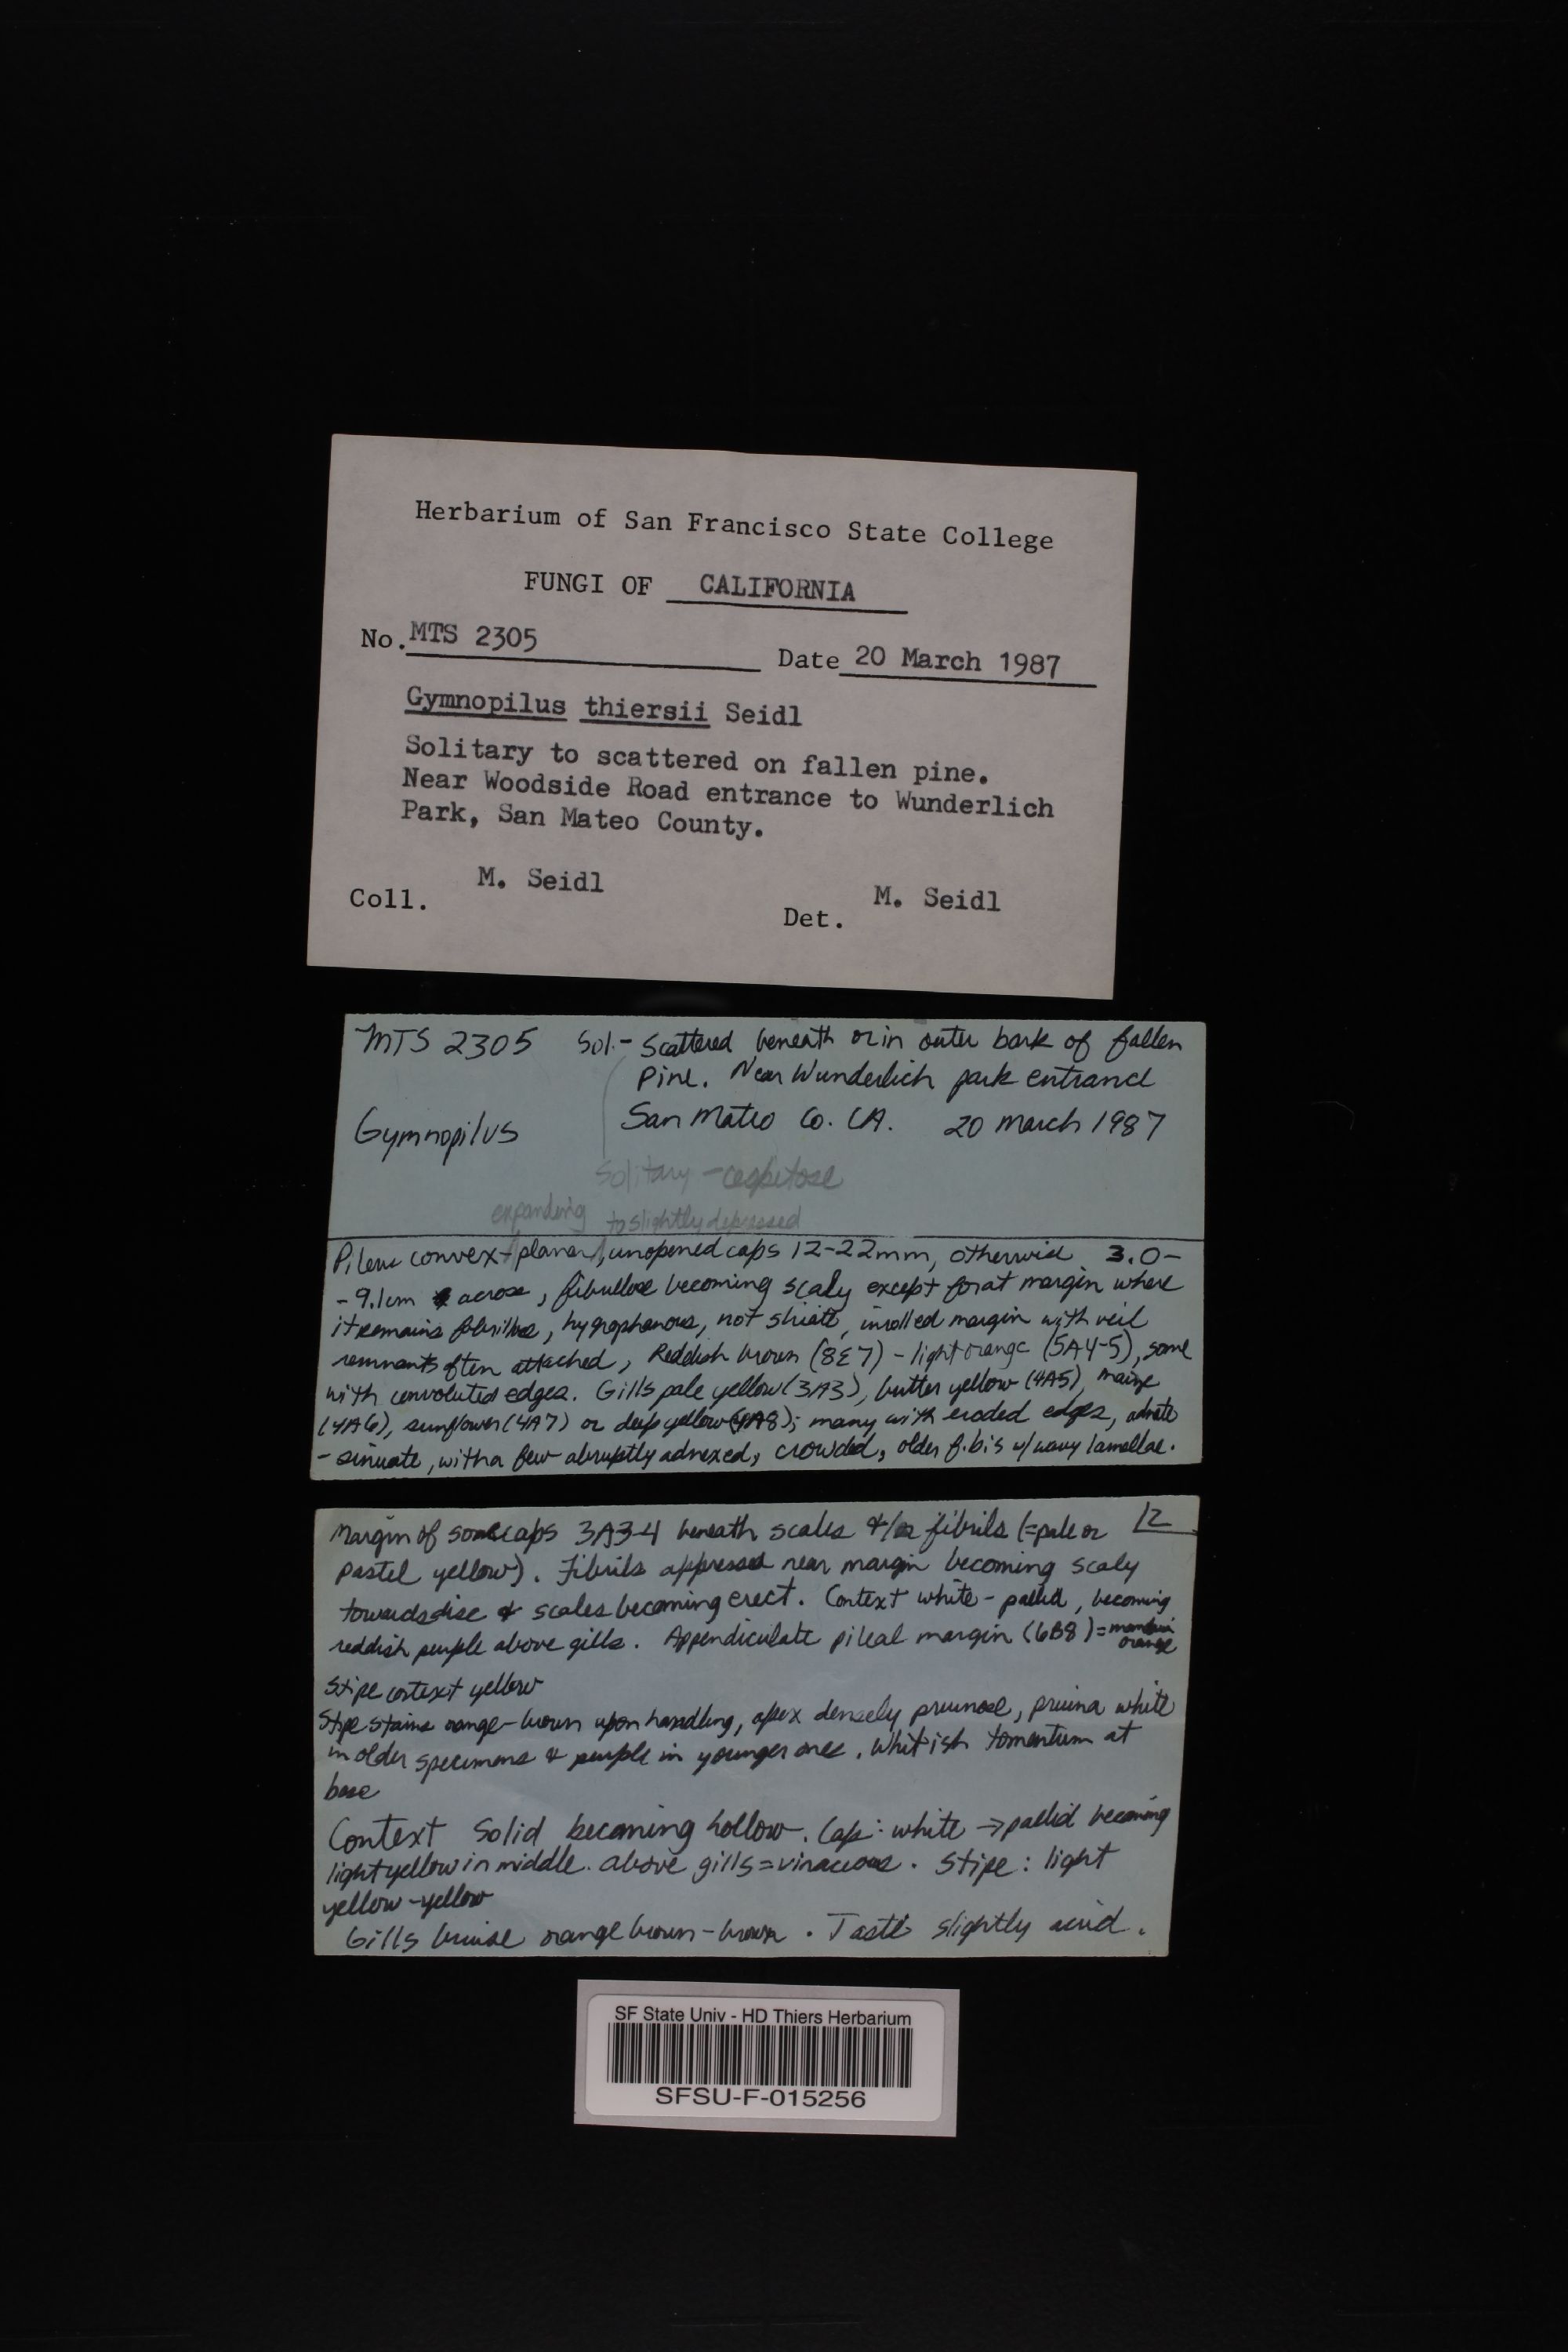 Herbarium of San Francisco State College
FUNGI OF CALIFORNIA
No. MTS 2305
Date 20 March 1987
Gymnopilus thiersii Seidl
Solitary to scattered on fallen pine.
Near Woodside Road entrance to Wunderlich
Park, San Mateo County.
Coll. M. Seidl
Det. M. Seidl
MTS 2305 Sol.- scattered beneath or in outer bark of fallen
pine. Near Wunderlich park entrance
Gymnopilus San Mateo Co. CA. 20 March 1987
Solitary - cespitose
expanding to slightly depressed
Pileus convex - plane, unopened caps 12-22mm, otherwise 3.0-
- 9.1cm across, fibrillose becoming scaly except for at margin where
it remains fibrillose, hygrophanous, not striate, inrolled margin with veil
remnants often attached, Reddish brown (8E7) - light orange (5A4-5), some
with convoluted edges. Gills pale yellow (3A3), butter yellow (4A5), maize
(4A6), sunflower (4A7) or deep yellow (4A8); many with eroded edges, adnate
- sinuate, with a few abruptly adnexed, crowded, older f.b.'s w/ wavy lamellae.
12
Margin of some caps 3A3-4 beneath scales &/or fibrils (=pale or
pastel yellow). Fibrils appressed near margin becoming scaly
towards disc & scales becoming erect. Context white - pallid, becoming
reddish purple above gills. Appendiculate pileal margin (6B8) = mandarin
orange
Stipe context yellow
Stipe stains orange-brown upon handling, apex densely pruinose, pruina white
in older specimens & purple in younger ones. Whitish tomentum at
base
Context Solid becoming hollow. Cap: white → pallid becoming
light yellow in middle. above gills = vinaceous. Stipe: light
yellow - yellow
Gills bruise orange brown - brown. Taste slightly acrid.
SF State Univ - HD Thiers Herbarium
SFSU-F-015256